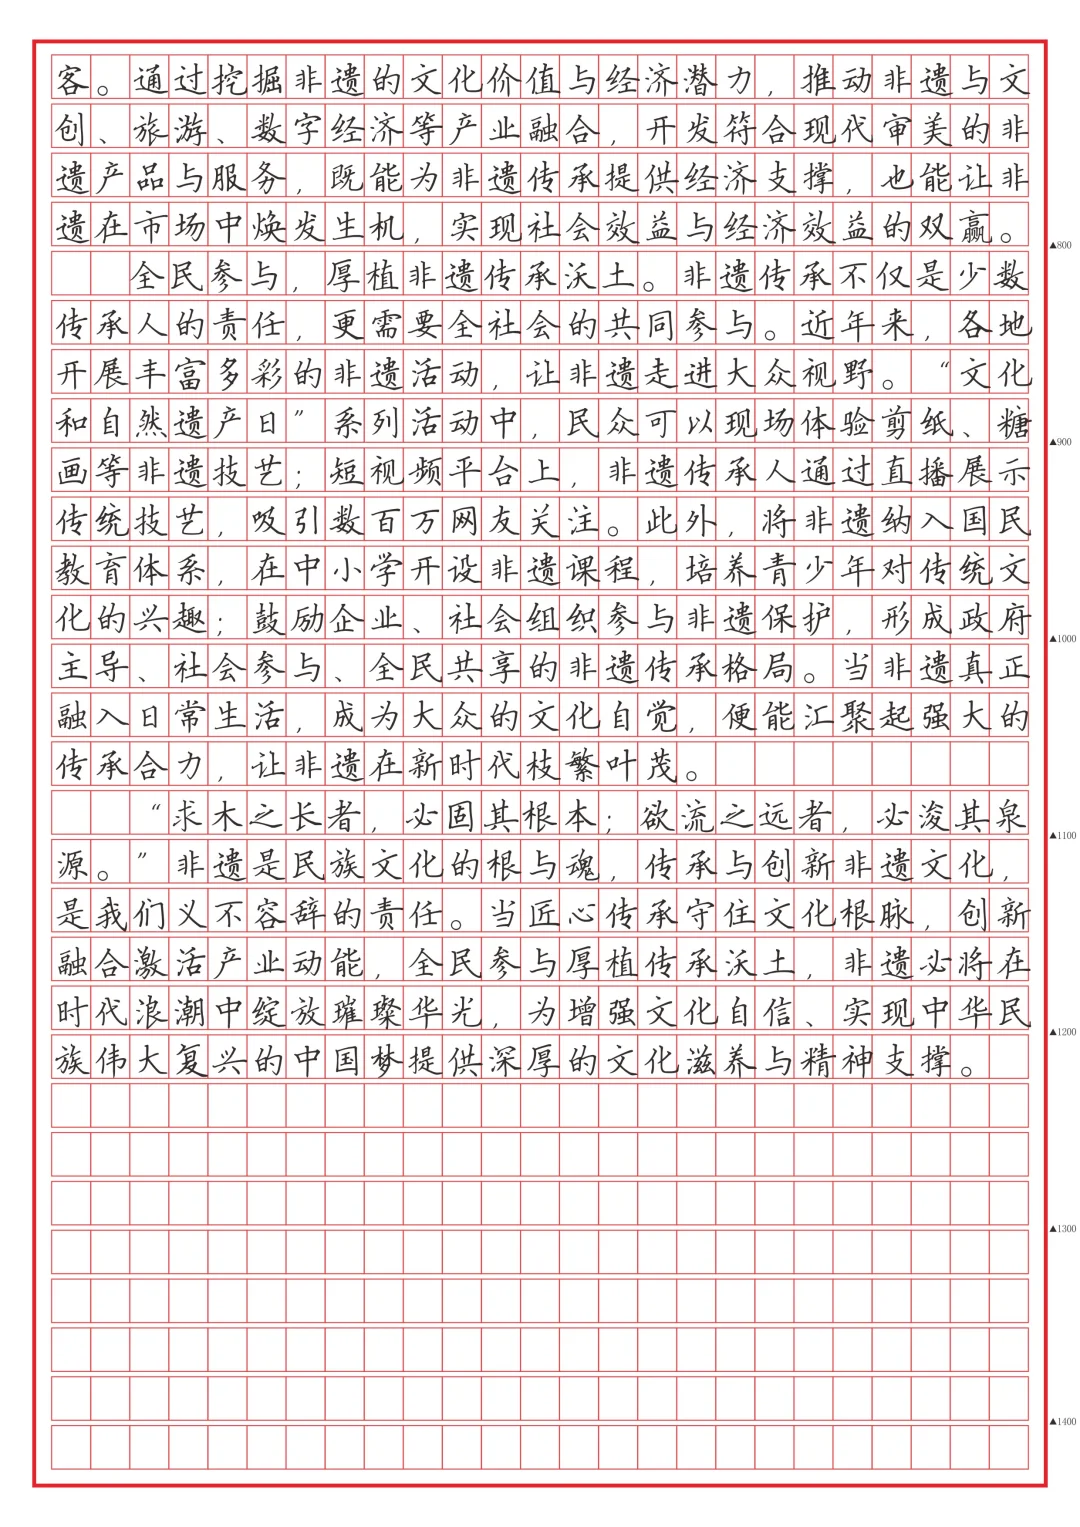 客。通过挖掘非遗的文化价值与经济潜力，推动非遗与文
创、旅游、数字经济等产业融合，开发符合现代审美的非
遗产品与服务，既能为非遗传承提供经济支撑，也能让非
遗在市场中焕发生机，实现社会效益与经济效益的双赢。
▲800
全民参与，厚植非遗传承沃土。非遗传承不仅是少数
传承人的责任，更需要全社会的共同参与。近年来，各地
开展丰富多彩的非遗活动，让非遗走进大众视野。“文化
和自然遗产日”系列活动中，民众可以现场体验剪纸、糖
▲900
画等非遗技艺；短视频平台上，非遗传承人通过直播展示
传统技艺，吸引数百万网友关注。此外，将非遗纳入国民
教育体系，在中小学开设非遗课程，培养青少年对传统文
化的兴趣；鼓励企业、社会组织参与非遗保护，形成政府
▲1000
主导、社会参与、全民共享的非遗传承格局。当非遗真正
融入日常生活，成为大众的文化自觉，便能汇聚起强大的
传承合力，让非遗在新时代枝繁叶茂。
“求木之长者，必固其根本；欲流之远者，必浚其泉
▲1100
源。”非遗是民族文化的根与魂，传承与创新非遗文化，
是我们义不容辞的责任。当匠心传承守住文化根脉，创新
融合激活产业动能，全民参与厚植传承沃土，非遗必将在
时代浪潮中绽放璀璨华光，为增强文化自信、实现中华民
▲1200
族伟大复兴的中国梦提供深厚的文化滋养与精神支撑。
▲1300
▲1400